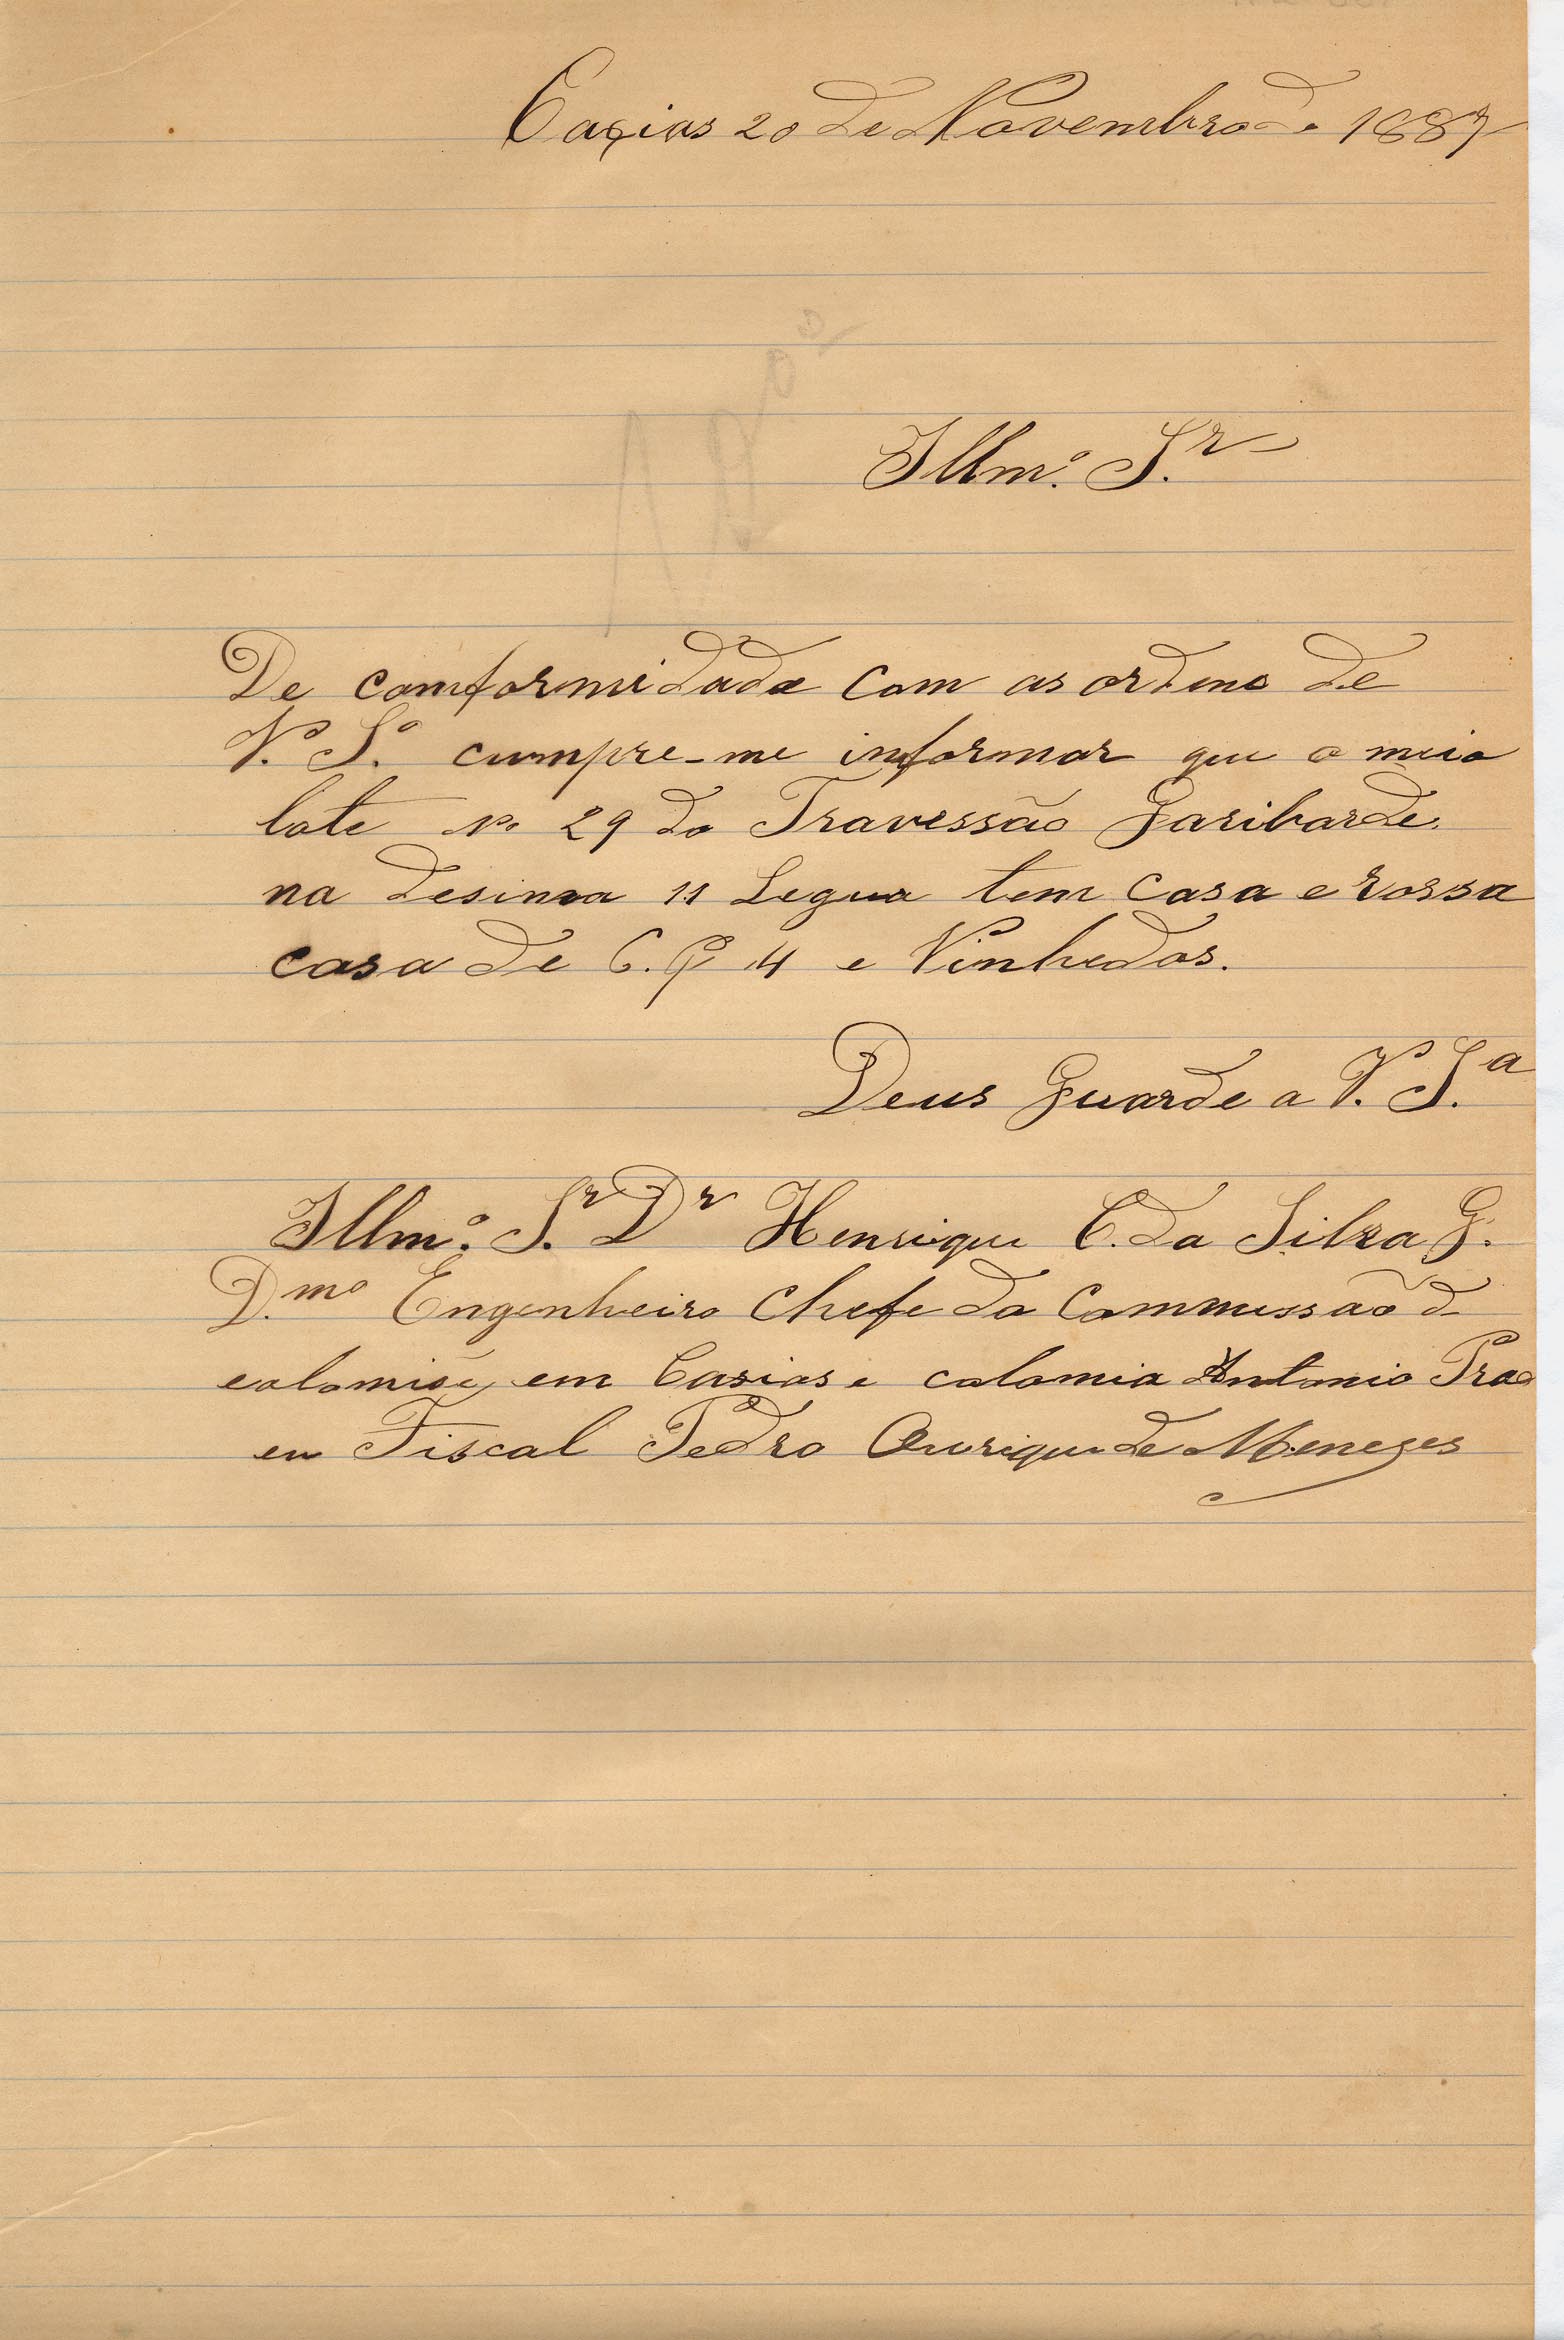 Caxias 20 de Novembro de 1887
Illm.º S.r
De comformidade com as ordens de
V. S.ª cumpre-me informar que o meio
lote Nº 29 do Travessão Garibarde.
na desima 11 Legua tem casa e rossa
casa de C. Q 4 e Vinhedos.
Deus Guarde a V. S.a
Illm.º S.r D.r Henrique C. da Silva G.
D.mo Engenheiro Chefe da Commissão d
em Caxias e colomia Antonio Prad
Fiscal Pedro Ourique de Menezes